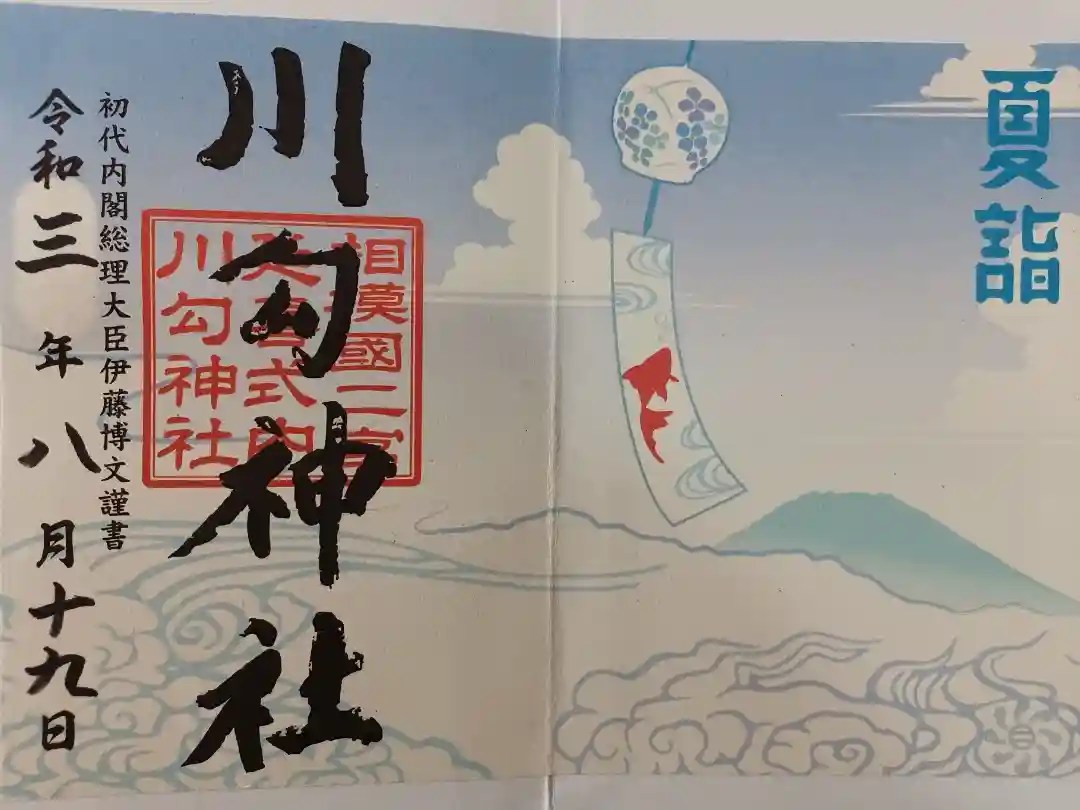 夏詣
川勾神社
相模國二宮
延喜式内
川勾神社
初代内閣総理大臣伊藤博文謹書
令和三年八月十九日